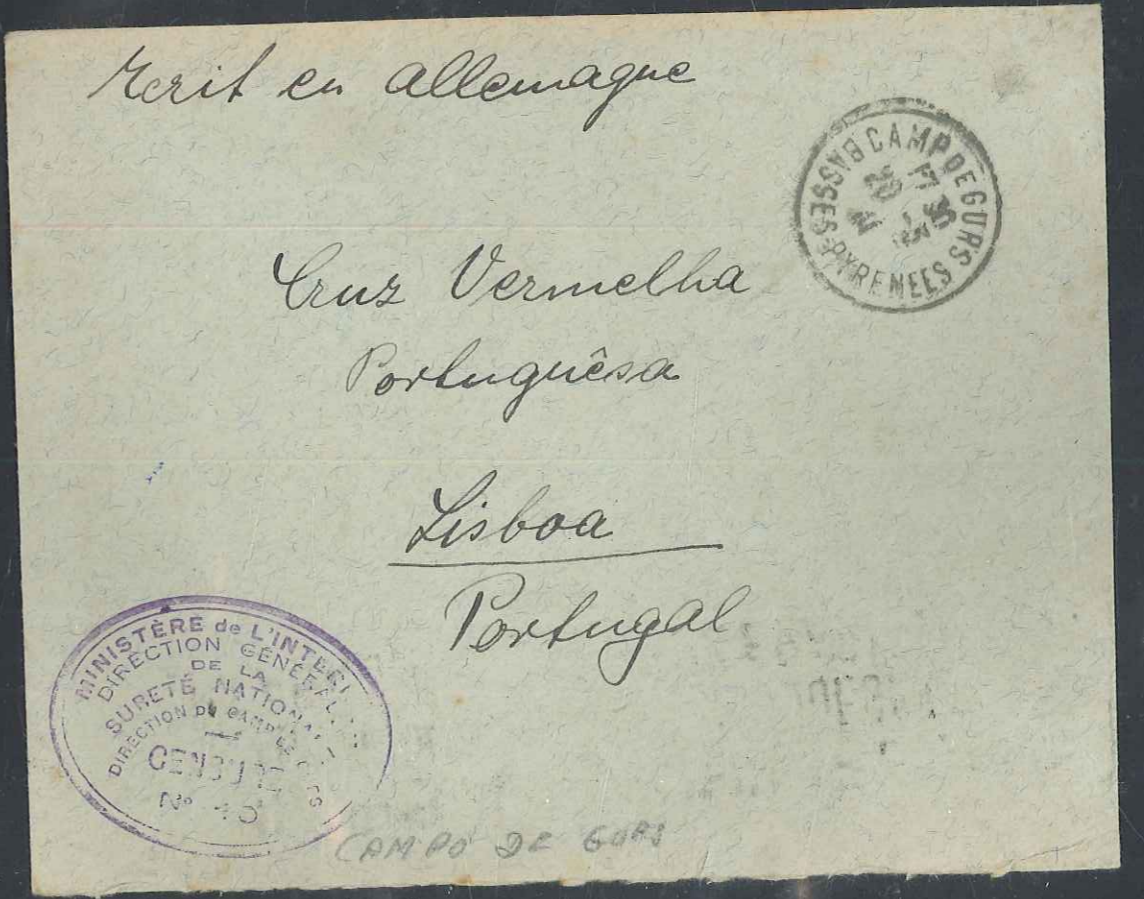 Ecrit en allemagne
CAMP DE GURS
BASSES-PYRENEES
20
Cruz Vermelha
Portuguêsa
Lisboa
Portugal
MINISTÈRE de L'INTERI
DIRECTION GÉNÉRAL
DE LA
SURETÉ NATIONAL
DIRECTION DU CAMP DE GURS
CENSURE
No
CAMPO DE GURS